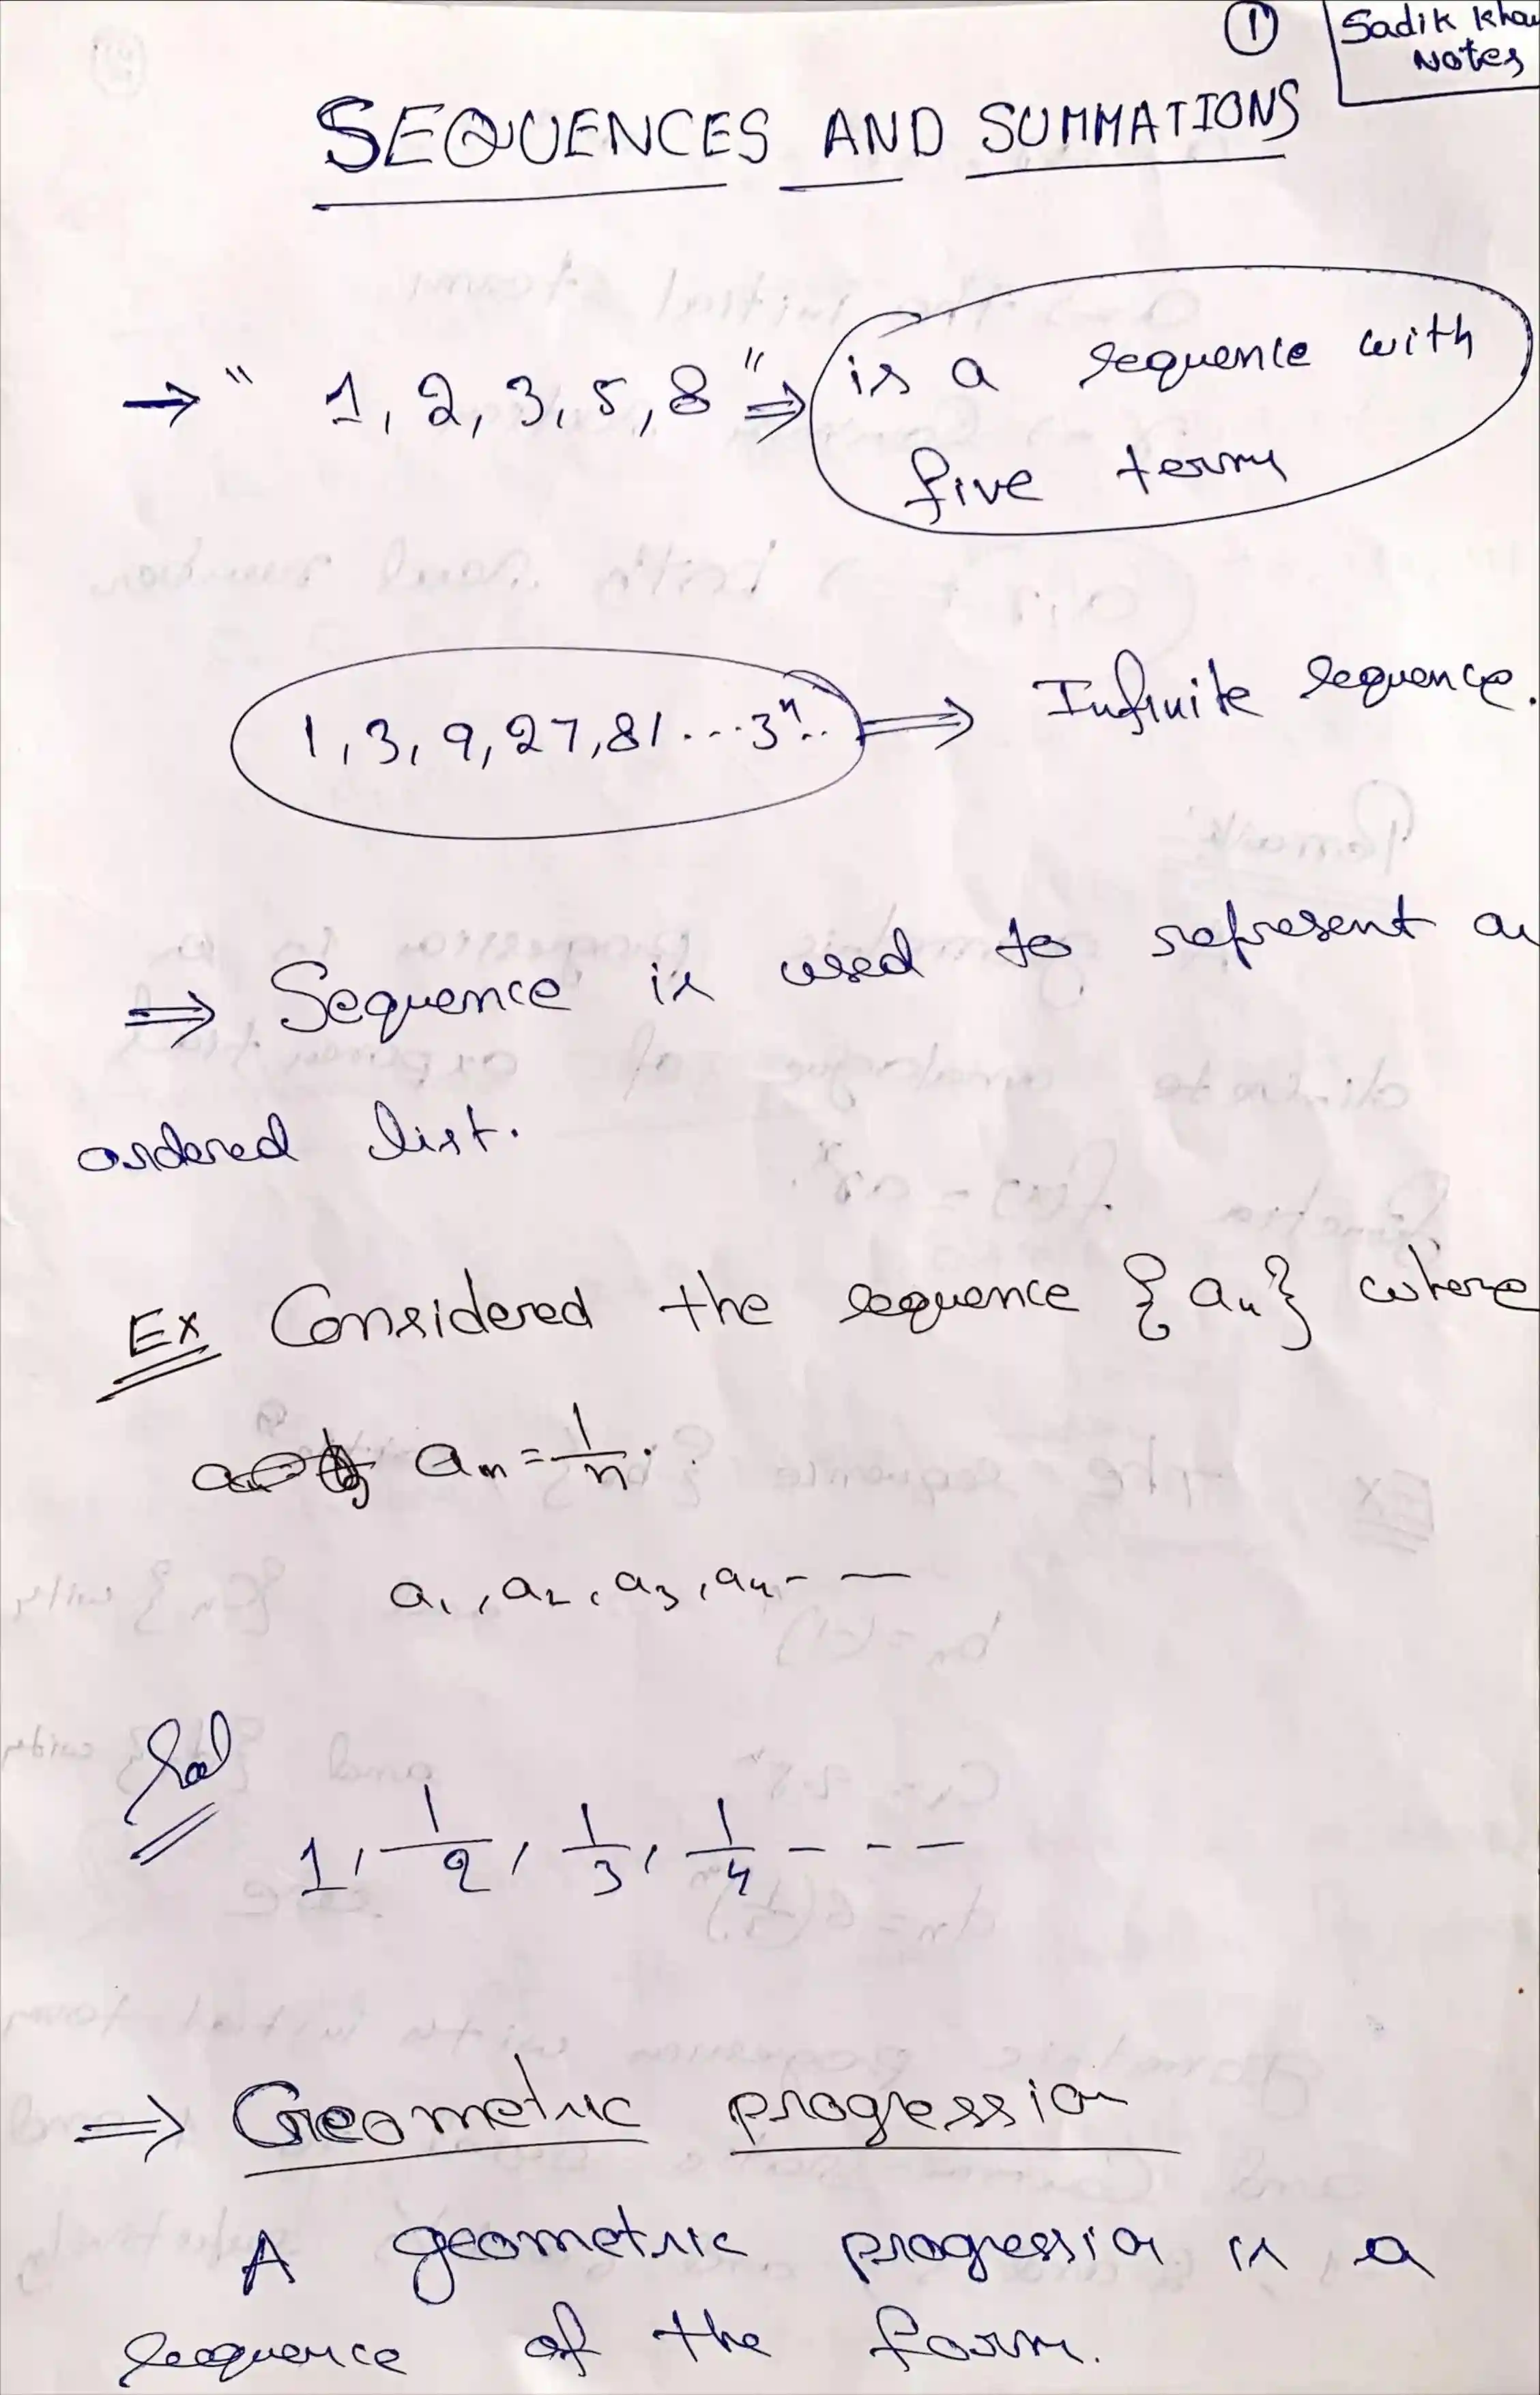 ① Sadik Khan
Notes
SEQUENCES AND SUMMATIONS
→ " 1, 2, 3, 5, 8 " ⇒ is a sequence with
five terms
1, 3, 9, 27, 81 ... 3ⁿ... ⇒ Infinite sequence.
⇒ Sequence is used to represent an
ordered list.
Ex Considered the sequence {aₙ} where
aₙ = 1/n.
a₁, a₂, a₃, a₄ - —
Sol
1, 1/2, 1/3, 1/4 - - - —
⇒ Geometric progression
A geometric progression is a
sequence of the form.